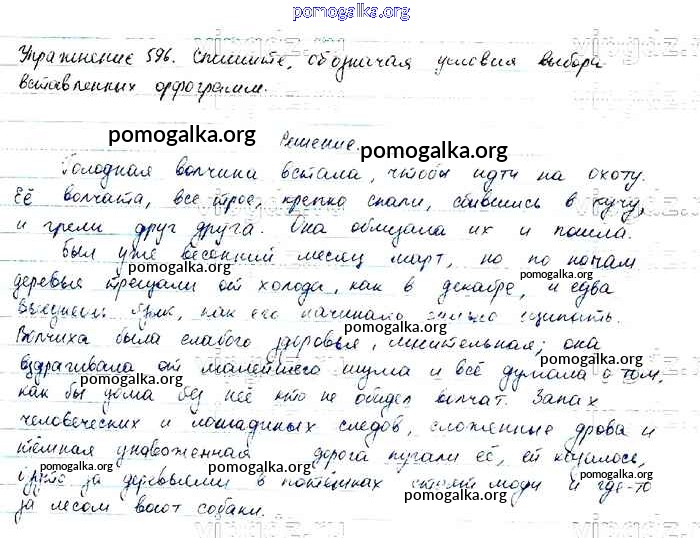 pomogalka.org
Упражнение 596. Спишите, обозначая условия выбора
вставленных орфограмм.
pomogalka.org Решение. pomogalka.org
Голодная волчиха встала, чтобы идти на охоту.
Её волчата, все трое, крепко спали, сбившись в кучу,
и грели друг друга. Она облизала их и пошла.
Был уже весенний месяц март, но по ночам
pomogalka.org pomogalka.org
деревья трещали от холода, как в декабре, и едва
высунешь язык, как его начинало сильно щипать.
pomogalka.org
Волчиха была слабого здоровья, мнительная; она
вздрагивала от малейшего шума и всё думала о том,
pomogalka.org pomogalka.org
как бы дома без неё кто не обидел волчат. Запах
человеческих и лошадиных следов, сложенные дрова и
тёмная унавоженная дорога пугали её, ей казалось,
pomogalka.org pomogalka.org
за деревьями в потёмках стоят люди и где-то
за лесом воют собаки.